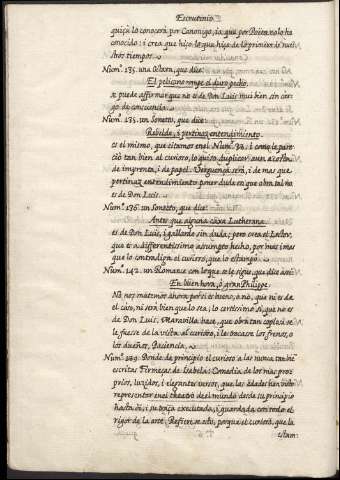 Escrutinio
quiçà lo conocerà por Canonigo, ia que por Poëta no lo ha
conocido: i crea que hijo lo que hijo de lo primero de nues
tros tiempos.
Num.º 135. una Octava, que dice:
El pelicano rompe el duro pecho.
se puede affirmar que no es de Don Luis mui bien sin car-
go de conciencia.
Num.º 135. un Soneto, que dice:
Rebelde, i pertinaz entendimiento.
es el mismo, que citamos en el Num.º 34. i como le pare-
ciò tan bien al curioso, lo quiso duplicar aun a costa
de imprenta, i de papel. Verguença serà, i de mas que
pertinaz entendimiento poner duda en que obra tal no
es de Don Luis.
Num.º 136. un Soneto, que dice:
Antes que alguna caxa Lutherana.
es de Don Luis, i gallardo sin duda; pero crea el Lector,
que es a differentissimo assumpto hecho, por mas que
lo contradiga el curioso, que lo estampò.
Num.º 142. un Romance con lo que se le sigue, que dice assi:
En buen hora, ô gran Philippe.
No nos matemos ahora por si es bueno, o nò, que ni es de
el caso, ni serà bien que lo sea; lo certissimo si, que no es
de Don Luis. Maravilla hace, que obra tan copiosa se
le fuesse de la vista al curioso, i le trocasse los frenos, o
los dueños, Paciencia.
Num.º 149. Donde da principio el curioso a las nunca tan bien
escritas Firmezas de Isabela: Comedia de los mas pro-
prios, luzidos, i elegantes versos, que las edades han visto
representar en el theatro de el mundo desde su principio
hasta oi; i su traça executada, i guardada con todo el
rigor de la arte. Refierese acto, porque el curioso, que la
estam-